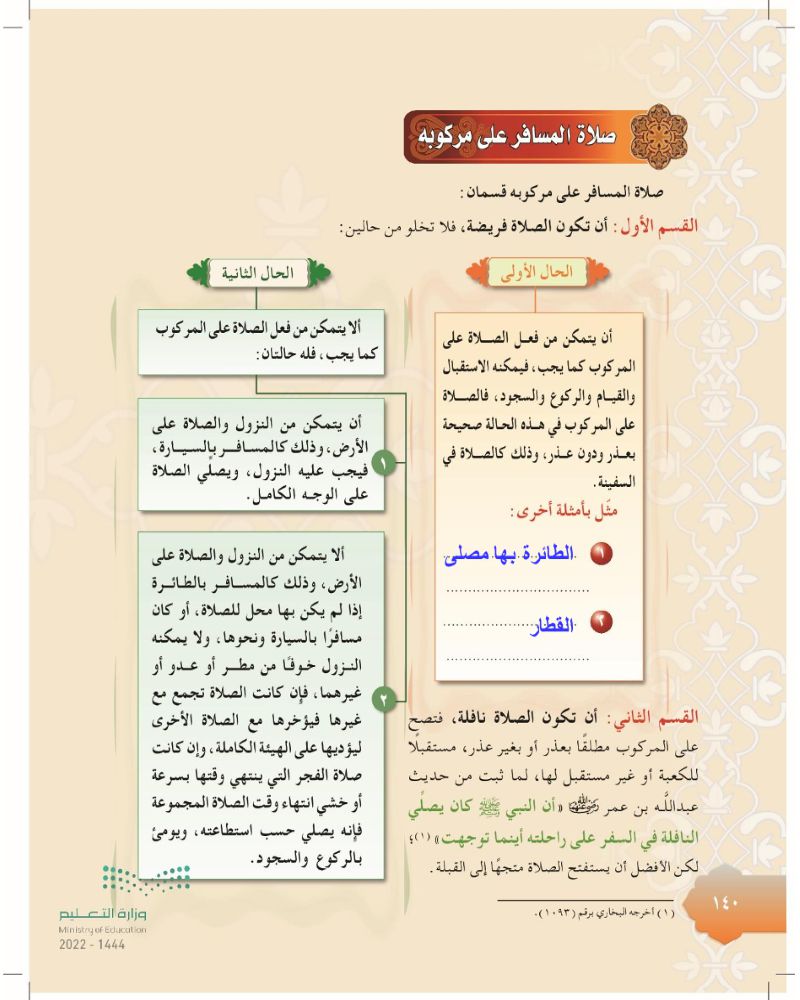 صلاة المسافر على مركوبه
صلاة المسافر على مركوبه قسمان:
القسم الأول: أن تكون الصلاة فريضة، فلا تخلو من حالين:
الحال الأولى
أن يتمكن من فعل الصلاة على
المركوب كما يجب، فيمكنه الاستقبال
والقيام والركوع والسجود، فالصلاة
على المركوب في هذه الحالة صحيحة
بعذر ودون عذر، وذلك كالصلاة في
السفينة.
مثّل بأمثلة أخرى:
١ الطائرة بها مصلى
٢ القطار
الحال الثانية
ألا يتمكن من فعل الصلاة على المركوب
كما يجب، فله حالتان:
١
أن يتمكن من النزول والصلاة على
الأرض، وذلك كالمسافر بالسيارة،
فيجب عليه النزول، ويصلي الصلاة
على الوجه الكامل.
٢
ألا يتمكن من النزول والصلاة على
الأرض، وذلك كالمسافر بالطائرة
إذا لم يكن بها محل للصلاة، أو كان
مسافرًا بالسيارة ونحوها، ولا يمكنه
النزول خوفًا من مطر أو عدو أو
غيرهما، فإن كانت الصلاة تجمع مع
غيرها فيؤخرها مع الصلاة الأخرى
ليؤديها على الهيئة الكاملة، وإن كانت
صلاة الفجر التي ينتهي وقتها بسرعة
أو خشي انتهاء وقت الصلاة المجموعة
فإنه يصلي حسب استطاعته، ويومئ
بالركوع والسجود.
القسم الثاني: أن تكون الصلاة نافلة، فتصح
على المركوب مطلقًا بعذر أو بغير عذر، مستقبلًا
للكعبة أو غير مستقبل لها، لما ثبت من حديث
عبدالله بن عمر رضي الله عنهما «أن النبي ﷺ كان يصلِّي
النافلة في السفر على راحلته أينما توجهت» (١)؛
لكن الأفضل أن يستفتح الصلاة متجهًا إلى القبلة.
(١) أخرجه البخاري برقم (١٠٩٣).
١٤٠
وزارة التعليم
Ministry of Education
2022 - 1444